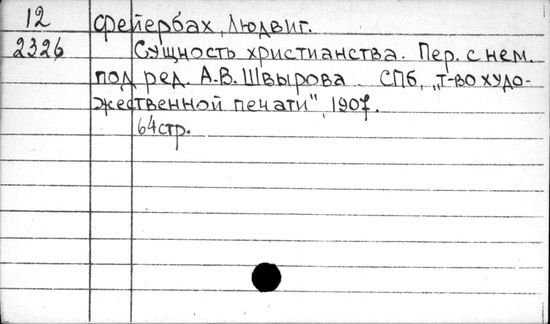 12 Фейербах, Людвиг.
2326 Сущность христианства. Пер. с нем.
под ред. А.В. Швырова СПб, „Т-во худо-
жественной печати", 1907.
64 стр.